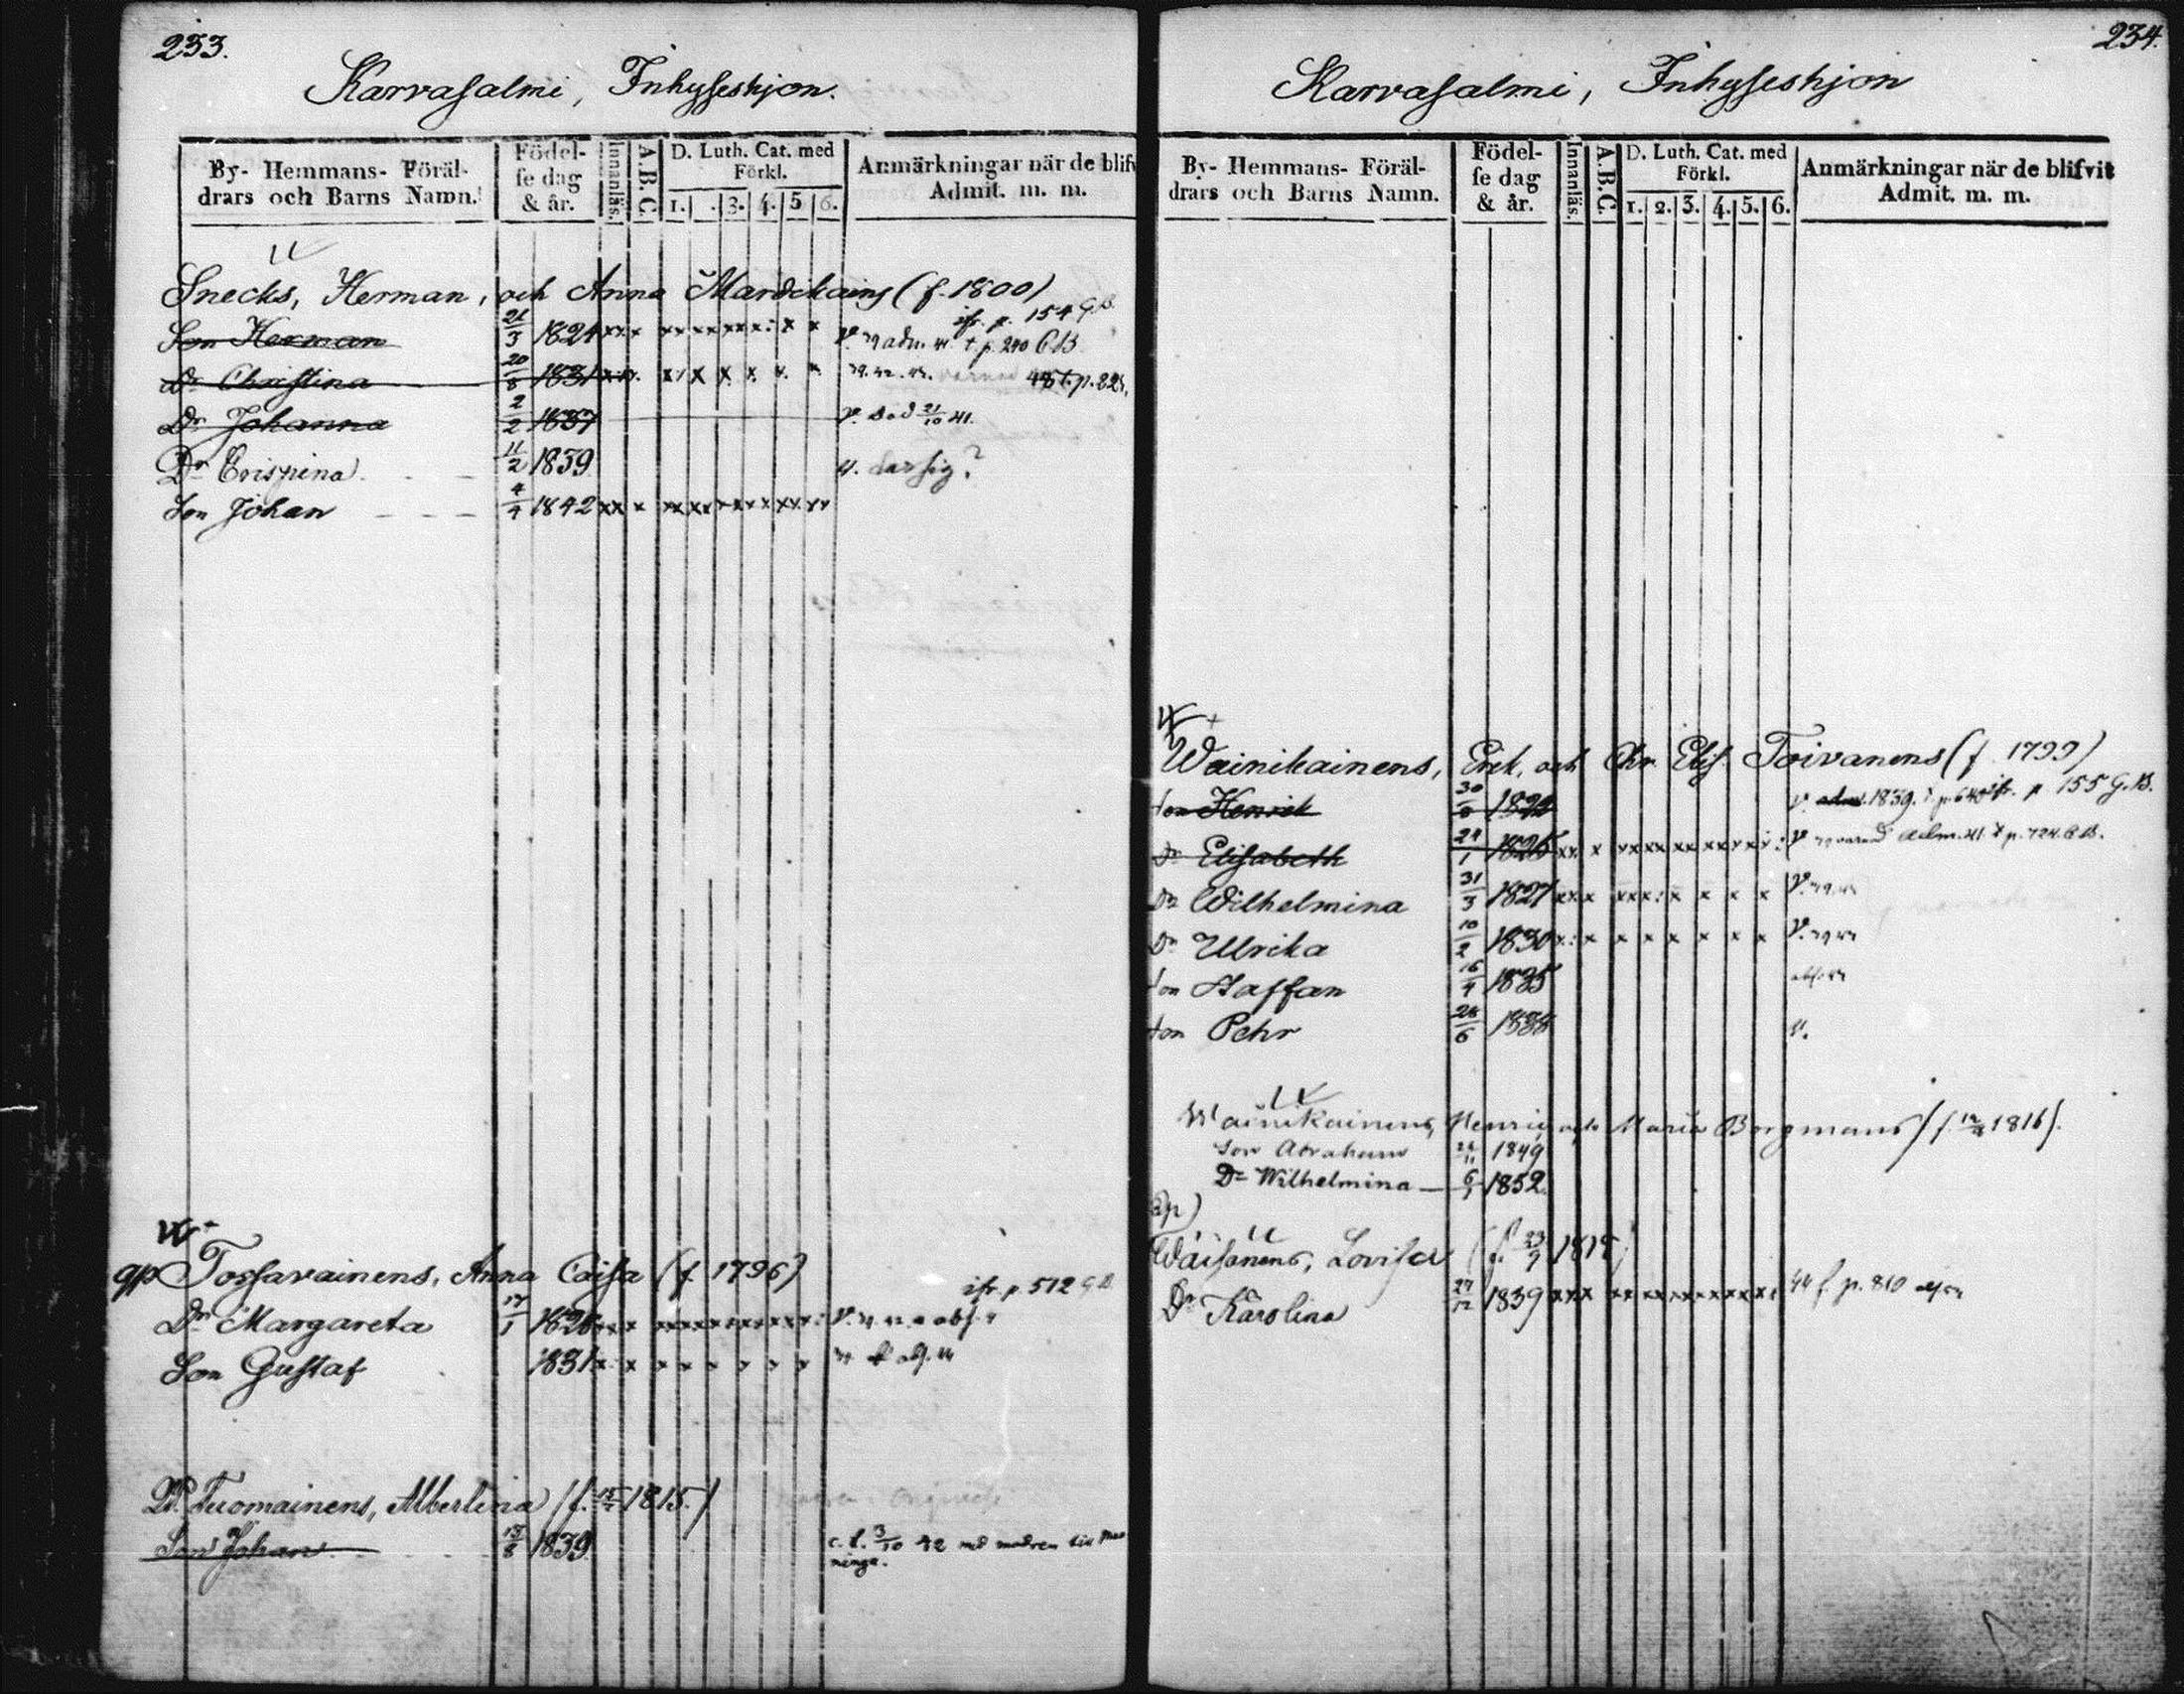 233.
Karvasalmi, Inhyseshjon.
By- Hemmans- Föräl-
drars och Barns Namn.
Födel-
se dag
& år.
Innanläs.
A.B.C.
D. Luth. Cat. med
Förkl.
1. . 3. 4. 5 6.
Anmärkningar när de blifv
Admit. m. m.
Snecks, Herman, och Anna Mardikains (f. 1800)
ifr. p. 154 G.B.
Son Herman 21/3 1824 xxx v. 39 adm. 41. † p. 290 C.B.
Dr Christina 20/8 1831 39. 42. 43. 48 f. p. 223.
Dr Johanna 2/2 1837 v. död 21/10 41.
Dr Crispina 11/2 1839
Son Johan 4/4 1842
Tossavainens, Anna Caisa (f. 1796)
ifr. p. 512 G.B.
Dr Margareta 17/1 1826
Son Gustaf 1831
Tuomainens, Albertina (f. 1815.)
Son Johan 13/8 1839 3/10 42 med modren till
234.
Karvasalmi, Inhyseshjon
By- Hemmans- Föräl-
drars och Barns Namn.
Födel-
se dag
& år.
Innanläs.
A.B.C.
D. Luth. Cat. med
Förkl.
1. 2. 3. 4. 5. 6.
Anmärkningar när de blifvit
Admit. m. m.
Wainikainens, Erik, och Chr. Elis. Toivanens (f. 1799)
Son Henrik 30/8 v. adm. 1839. ifr. p 155 G.B.
Dr Elisabeth 24/1 1825 adm. 41. † p. 724. C.B.
Dr Wilhelmina 31/3 1827
Dr Ulrika 10/2 1830
Son Staffan 16/4 1835
Son Pehr 28/6 1838 v.
Wainikainens, Henric och Maria Borgmans (f. 1816).
Son Abraham 1849
Dr Wilhelmina 6/1 1852
Wäisänens, Lovisa (f. 23/9 1818)
Dr Karolina 27/12 1839 44 f. p. 810